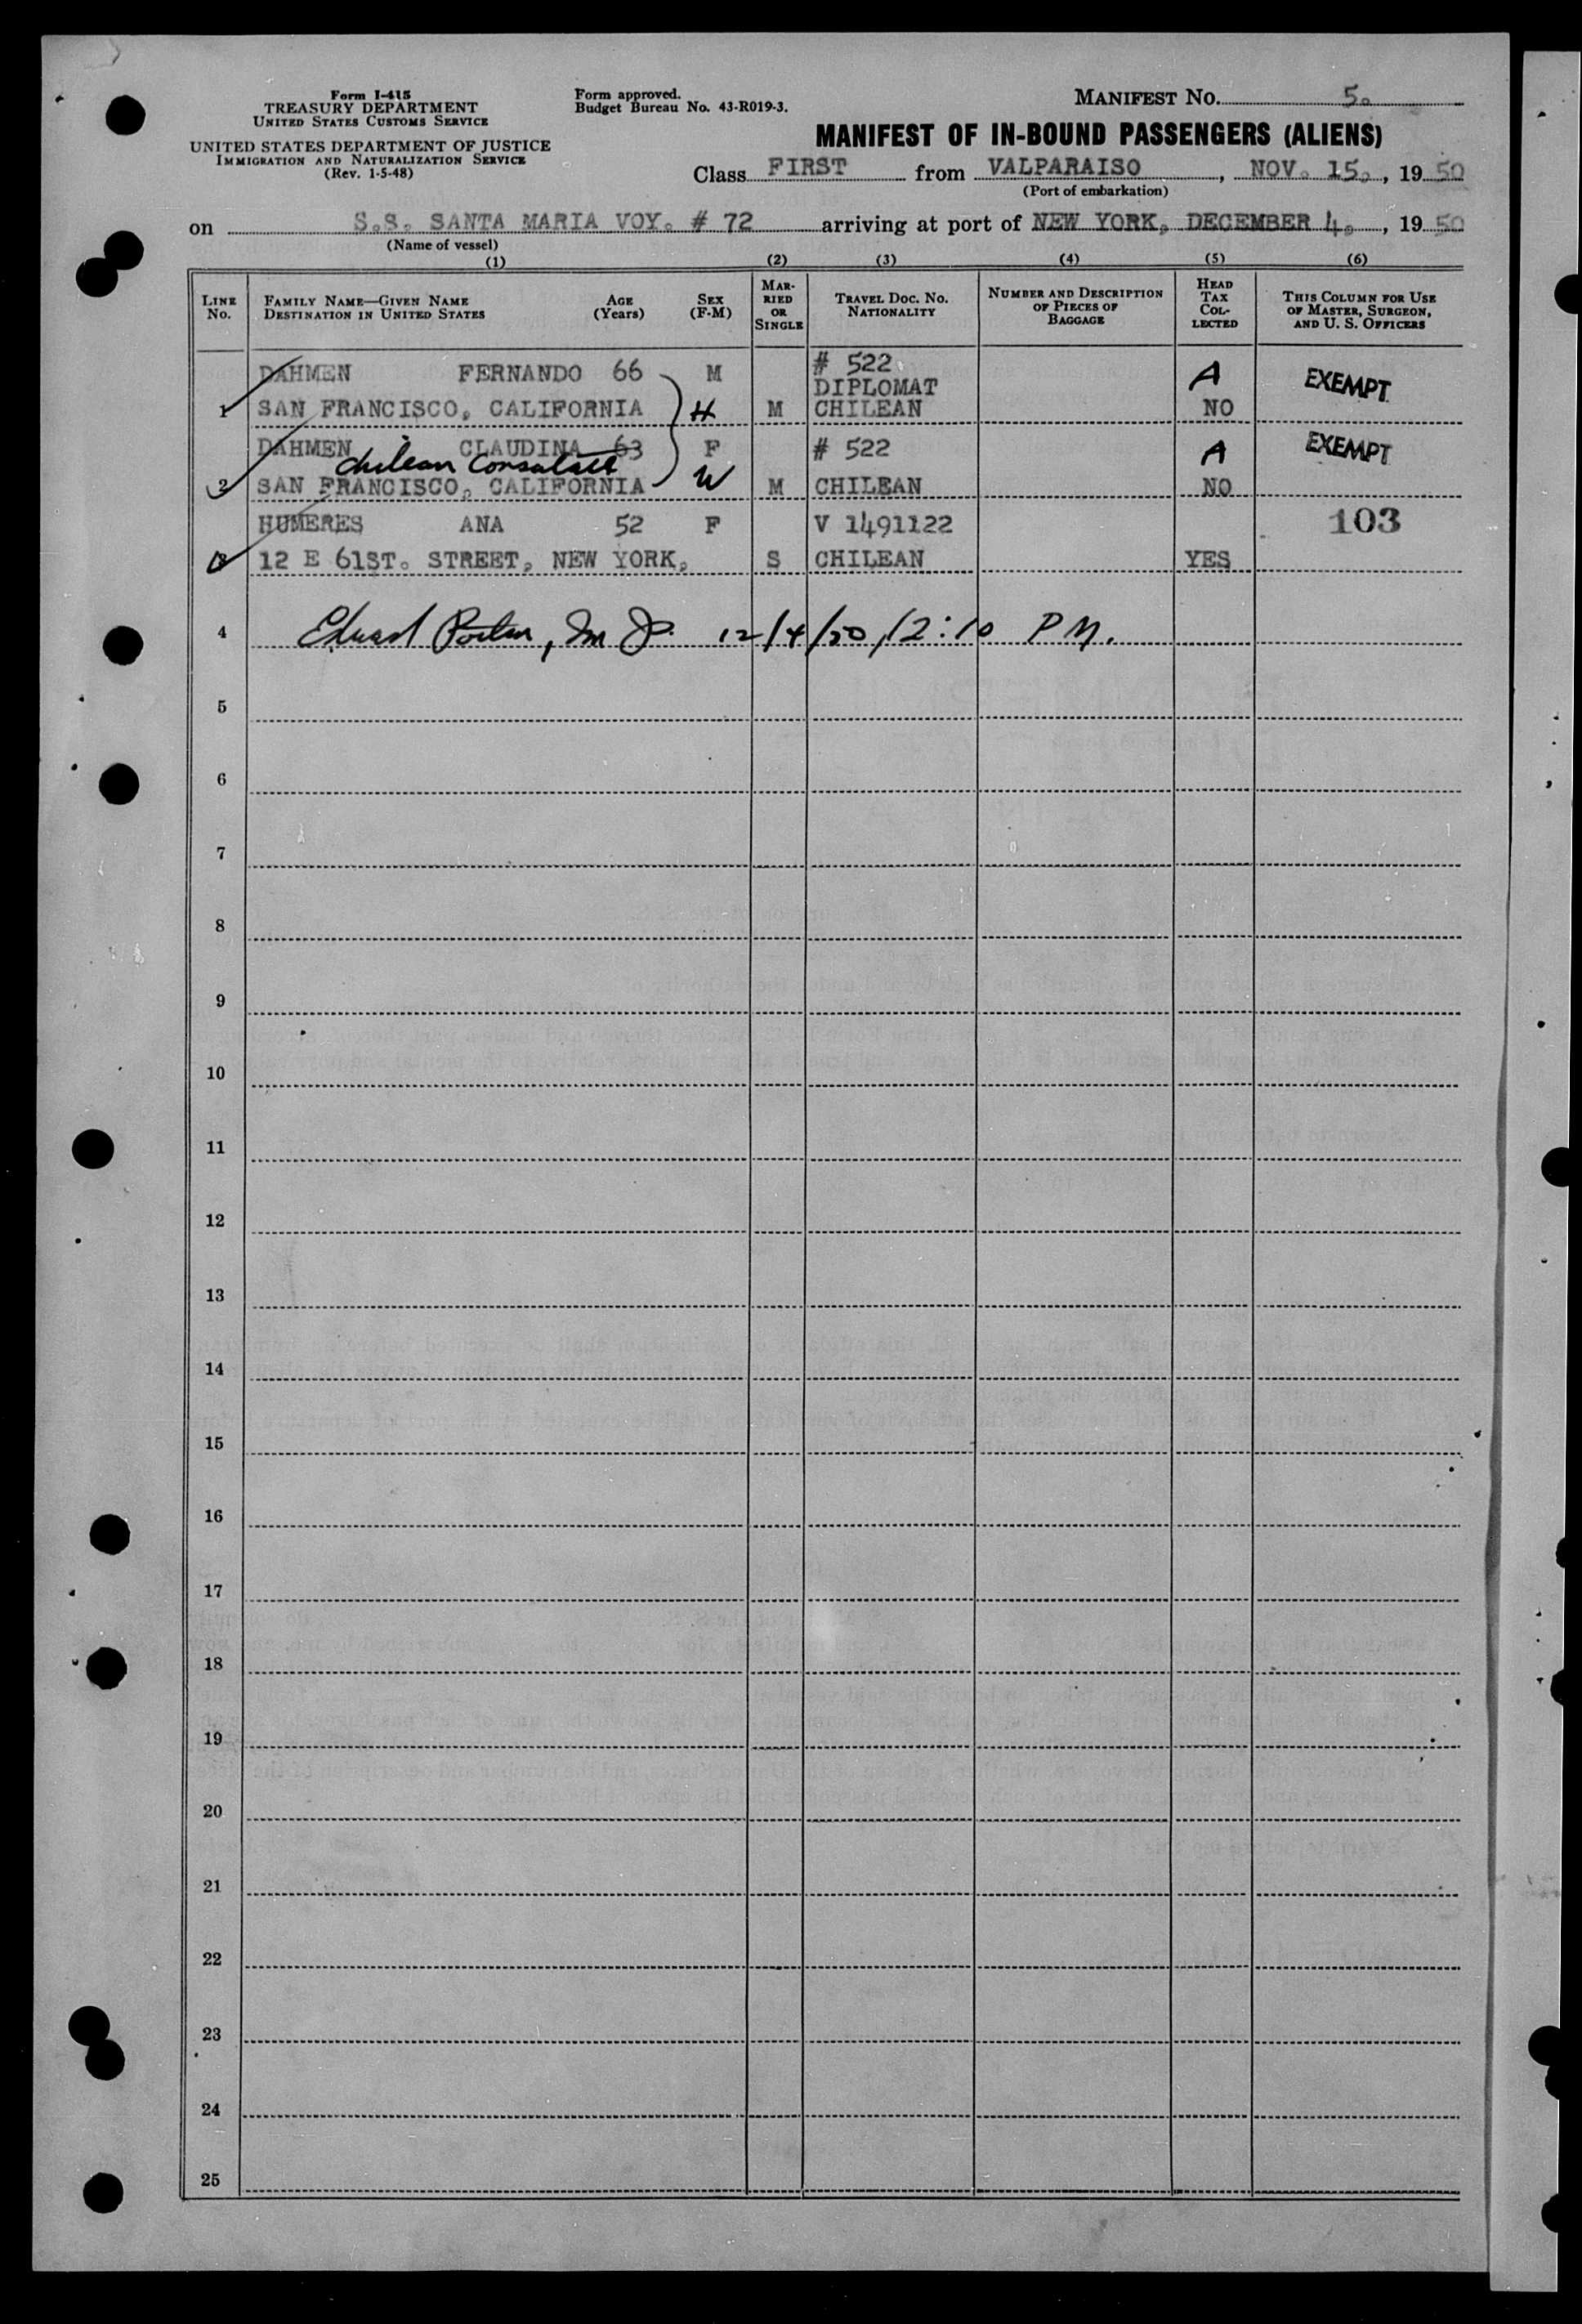 Form I-415
TREASURY DEPARTMENT
UNITED STATES CUSTOMS SERVICE
UNITED STATES DEPARTMENT OF JUSTICE
IMMIGRATION AND NATURALIZATION SERVICE
(Rev. 1-5-48)
Form approved.
Budget Bureau No. 43-R019-3.
MANIFEST No. 5.
MANIFEST OF IN-BOUND PASSENGERS (ALIENS)
Class FIRST from VALPARAISO, NOV. 15., 19 50
(Port of embarkation)
on S.S. SANTA MARIA VOY. # 72 arriving at port of NEW YORK, DECEMBER 4., 19 50
(Name of vessel)
(1) (2) (3) (4) (5) (6)
LINE No.
FAMILY NAME—GIVEN NAME
DESTINATION IN UNITED STATES
AGE (Years)
SEX (F-M)
MARRIED OR SINGLE
TRAVEL DOC. No.
NATIONALITY
NUMBER AND DESCRIPTION OF PIECES OF BAGGAGE
HEAD TAX COLLECTED
THIS COLUMN FOR USE OF MASTER, SURGEON, AND U. S. OFFICERS
DAHMEN FERNANDO 66 M # 522 A EXEMPT
DIPLOMAT
1 SAN FRANCISCO, CALIFORNIA H M CHILEAN NO
DAHMEN CLAUDINA 63 F # 522 A EXEMPT
Chilean Consulate
2 SAN FRANCISCO, CALIFORNIA W M CHILEAN NO
HUMERES ANA 52 F V 1491122 103
3 12 E 61ST. STREET, NEW YORK, S CHILEAN YES
4 12/4/50, 12:10 PM.
5
6
7
8
9
10
11
12
13
14
15
16
17
18
19
20
21
22
23
24
25